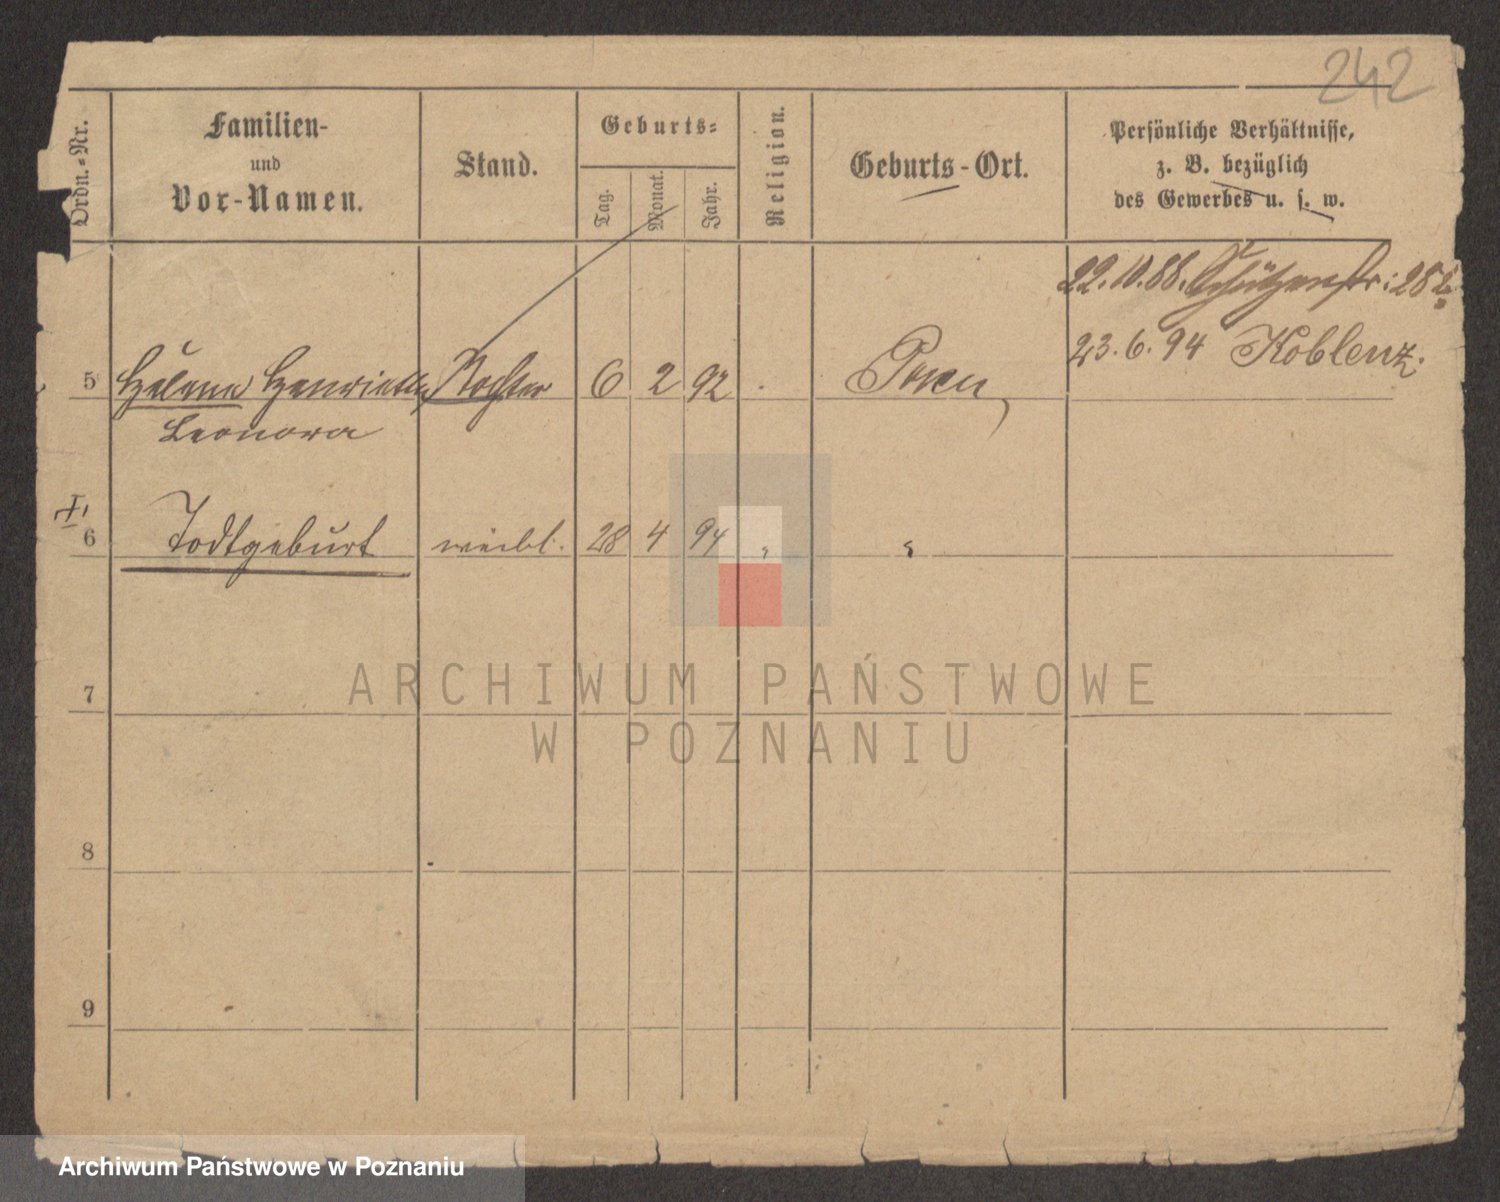 242
Ordn.-Nr.
Familien-
und
Vor-Namen.
Stand.
Geburts-
Tag.
Monat.
Jahr.
Religion.
Geburts-Ort.
Persönliche Verhältnisse,
z. B. bezüglich
des Gewerbes u. s. w.
22.10.88. Schützenstr: 28
23.6.94 Koblenz.
5 Helene Henriette Tochter 6 2 92 Posen
Leonora
6 Todtgeburt weibl. 28 4 94 " "
7
8
9
ARCHIWUM PAŃSTWOWE
W POZNANIU
Archiwum Państwowe w Poznaniu